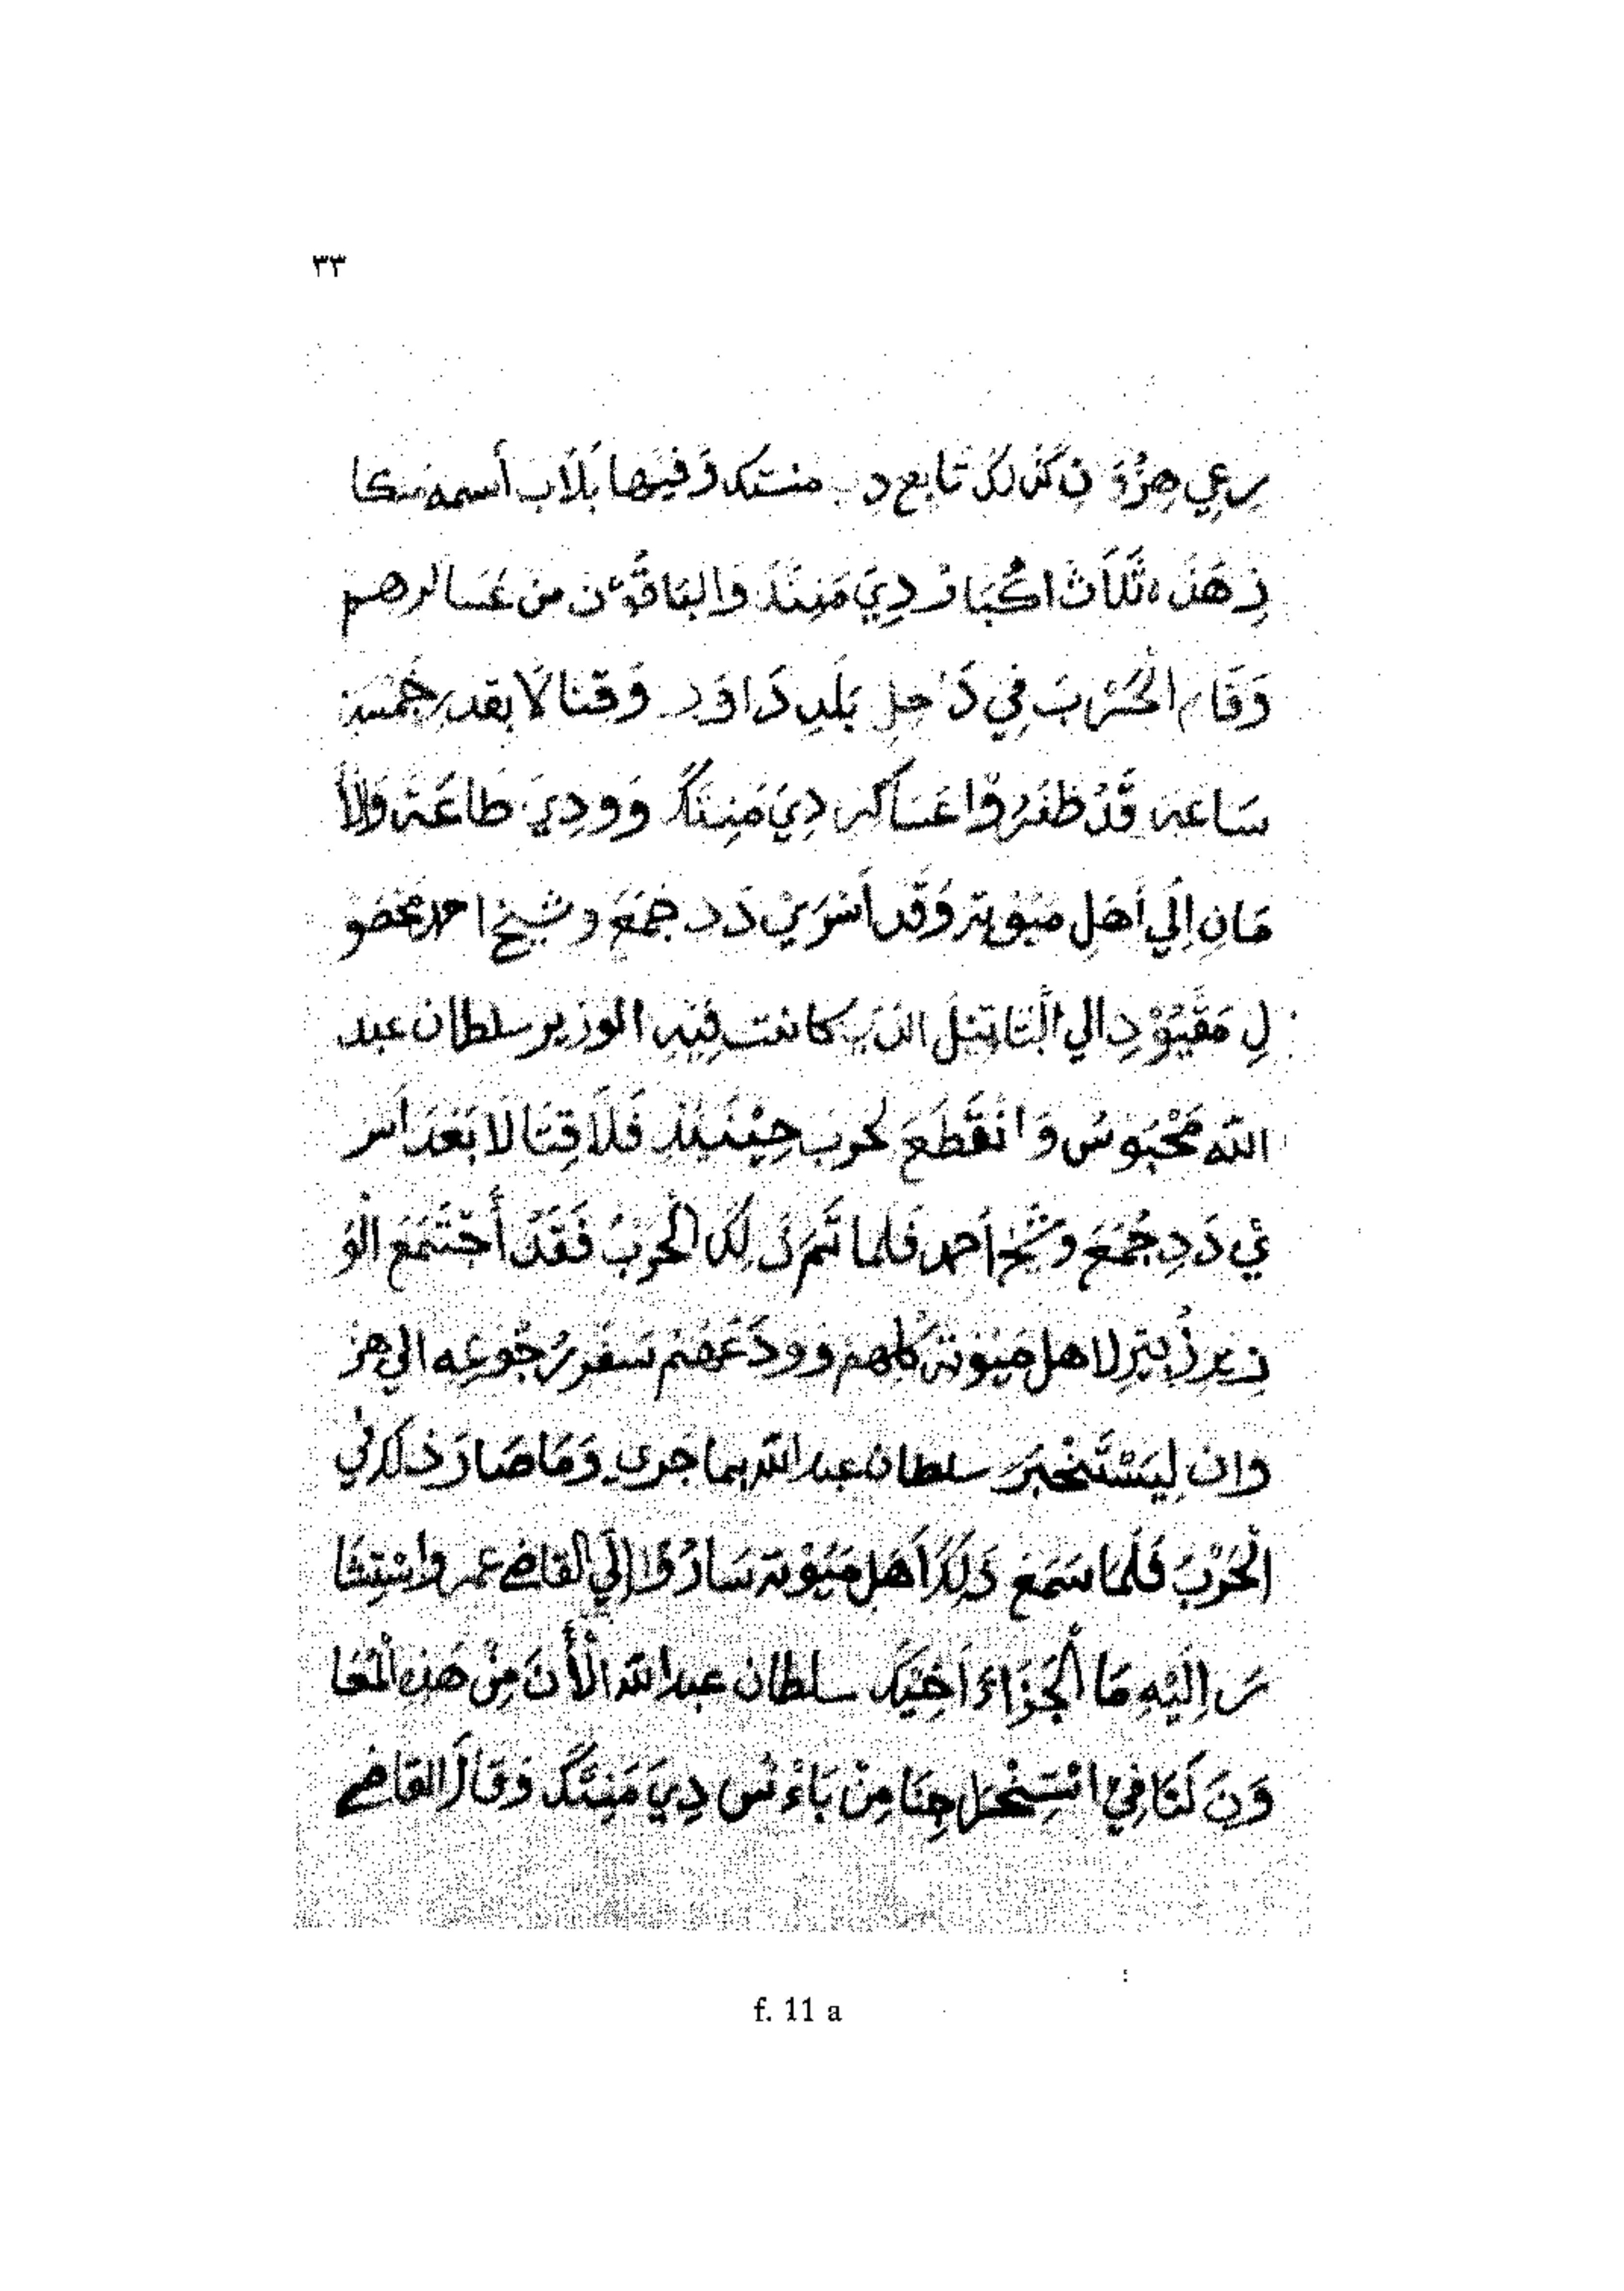 ٣٣
رعي هِزْوَنِ كَذَلِكَ تابع دي منتك وَفيها بَلَاب أسمه مكا
زِ هَذه ثَلَاثْ اكُبَارْ دِيَ مَنِنَدَ وَالبَاقُوْن من عَسالرهم
وَقَام الْحَرْبَ فِي دَاخِل بَلَدِ دَاوَد وَقتا لَا بقدر خَمْسَة
سَاعة قَدْ ظَفَرُوْا عَسَاكر دِيَ مَنِتَكَ وَودِيَ طَاعَة وَالأَ
مَانِ اِلَي أَهَلِ ميوْتة وَقَد أَسْرَيْ دَد جُمَعَ وشيخ احمد مخضو
لِ مَقْيُوْدِ الي الْبَتَاتِيل الذي كانت فِيْهِ الوزير سلطان عبد
الله مَحْبَوسُ وَانْقَطَعَ لحرب حِيْنَئِذِ فَلَا قِتَا لَا بَعْدَ أَسر
يْ دَدِ جُمَعَ وشيخ أَحمد فلما تَمَ ذَلِكَ الْحَرْبُ فَقَدَ أَجْتَمَعَ الْوَ
زِير لاهل مَيُوتة كلهم وودَعَهُمْ سَفَر رُجُوعِه الي هز
وان لِيَسْتَخْبَرَ سلطان عبد الله بما جري وَمَا صَارَ ذلك في
الْحَرْبَ فَلَمَا سَمَعَ ذَلِكَ أَهَل مَيُوْتة سَارُوْا إِلَي القاضي عمر وانتِشَا
رَ اِلَيْهِ مَا الْجَزَاءَ أَخِيَكَ سلطان عبد الله الْأَنَ مِنْ هَذِه الْمَعَا
وَنَ لَنَا فِيْ اسْتِخْرَاجِنَا مِنْ بَاءْسْ دِيَ مَنِتَكَ وَقَالَ القاضي
f. 11 a